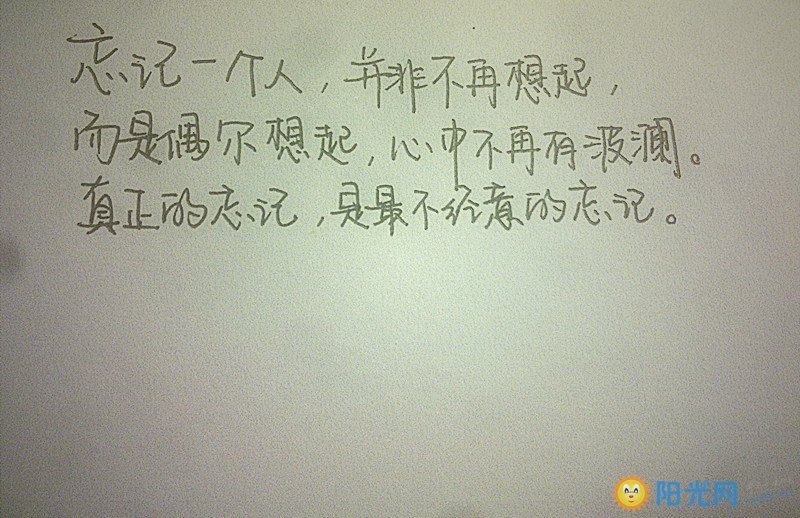 忘记一个人，并非不再想起，
而是偶尔想起，心中不再有波澜。
真正的忘记，是最不经意的忘记。
阳光网